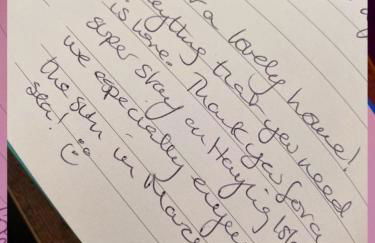 a lovely home!
everything that you need
is here. Thank you for a
super stay on Hayling Isl
we especially enjoyed
the sun in March
sea! :)